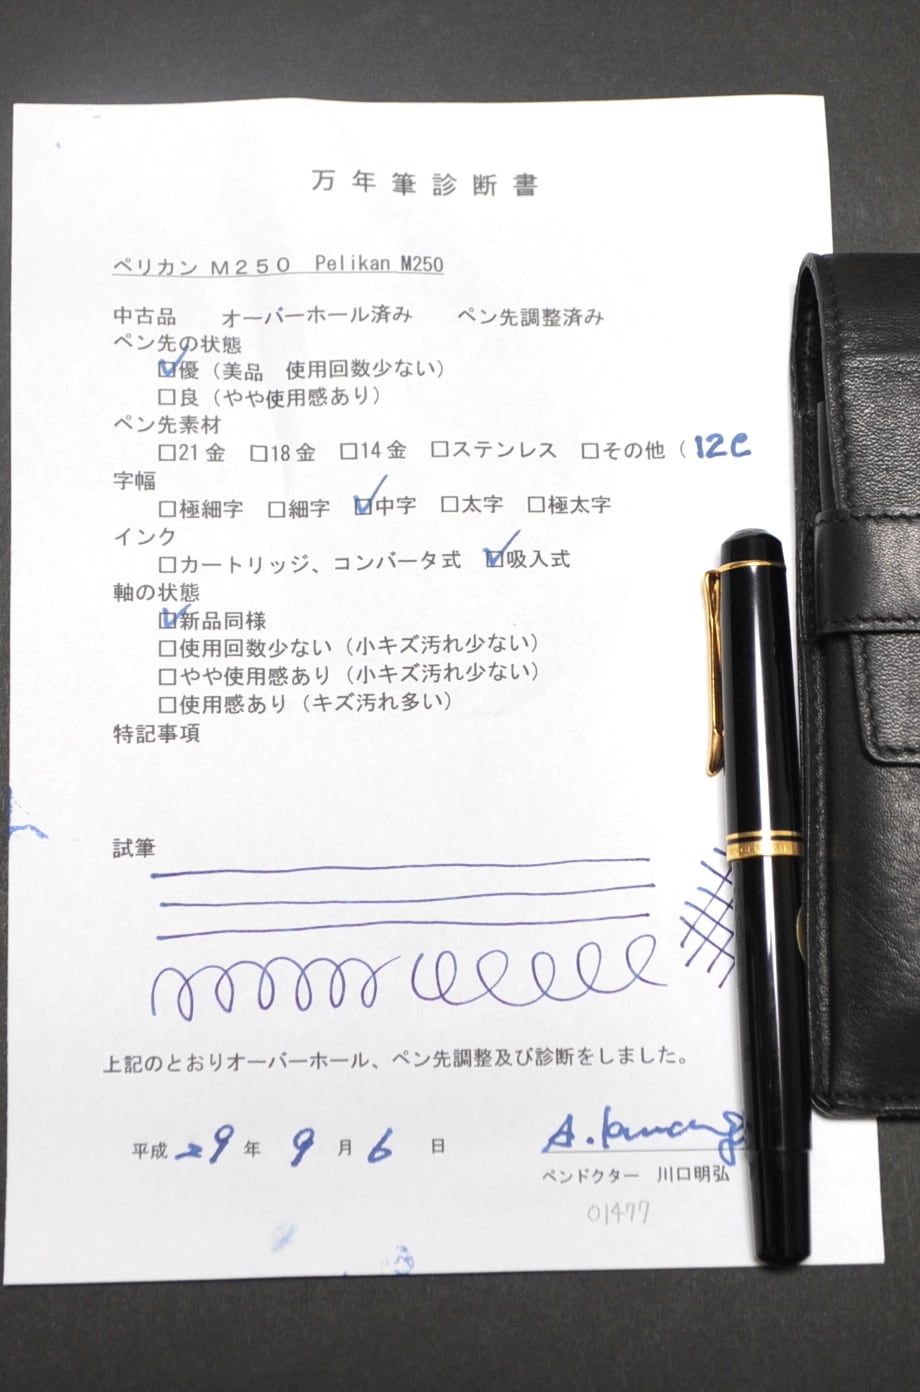 万年筆診断書
ペリカン M250 Pelikan M250
中古品 オーバーホール済み ペン先調整済み
ペン先の状態
☑優（美品 使用回数少ない）
□良（やや使用感あり）
ペン先素材
□21金 □18金 □14金 □ステンレス □その他（12C
字幅
□極細字 □細字 ☑中字 □太字 □極太字
インク
□カートリッジ、コンバータ式 ☑吸入式
軸の状態
☑新品同様
□使用回数少ない（小キズ汚れ少ない）
□やや使用感あり（小キズ汚れ少ない）
□使用感あり（キズ汚れ多い）
特記事項
試筆
上記のとおりオーバーホール、ペン先調整及び診断をしました。
平成 29 年 9 月 6 日
ペンドクター 川口明弘
01477